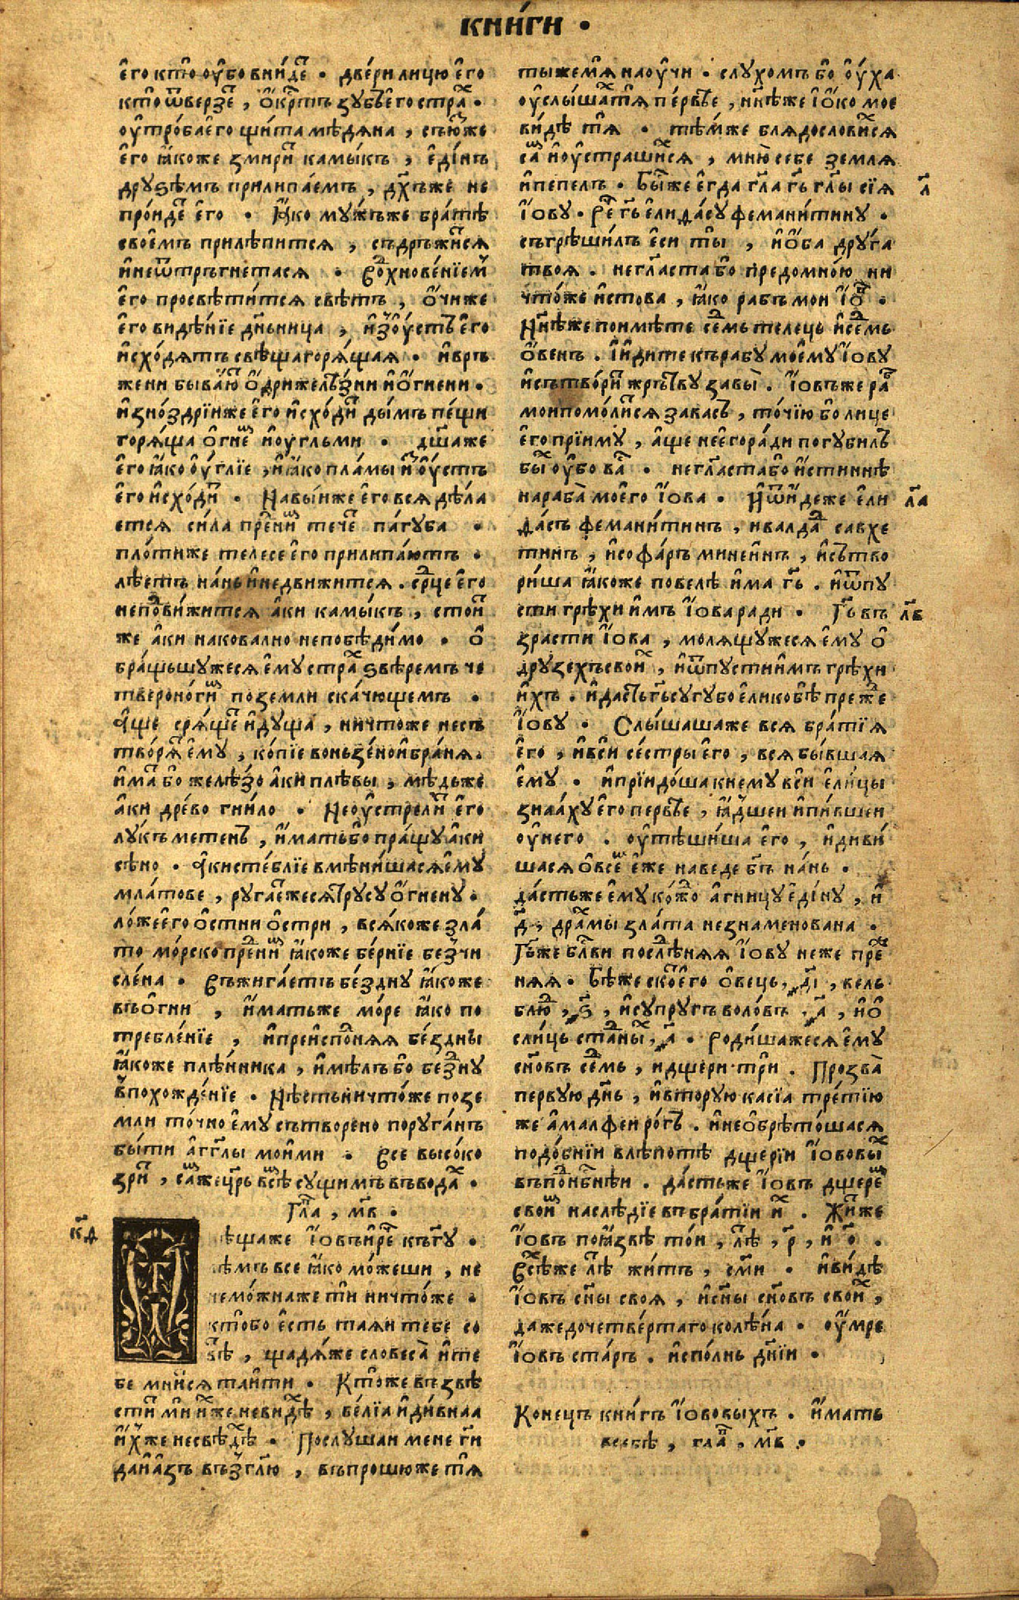 КНИ́ГИ ·
е҆го кто̀ оу҆бо вни́деⷮ · две́ри лицю̀ е҆го
кто̀ ѿве́рзеⷮ, о҆́крⷭ҇тъ зꙋбъ е҆го стра́ⷯ ·
оу҆тро́ба е҆го щи́та мѣ́дѧна, съꙋ́зже
е҆го ꙗ҆́коже смириⷮ ка́мыкъ, е҆ди́нъ
дрꙋѕѣ́мъ прилипа́емъ, дх҃ъже не
про́идеⷮ е҆го · Ꙗ҆́ко мꙋ́жъже бра́тѣ
свое́мъ прилѣ́питсѧ, съдръжи́тсѧ
и҆ неѿтръгнетасѧ · Въдохнове́нїемъ
е҆го просвѣти́тсѧ свѣтъ, о҆́чиже
е҆го ви́дѣнїе дн҃ьница, и҆зоу҆́стъ е҆го
и҆схо́дѧтъ свѣща горѧ́щаѧ · и҆ връ
жени быва́ютъ о҆дрижелѣ́зни и҆ о҆́гнени ·
и҆зно́здрїи же е҆го и҆схо́диⷮ ды́мъ пе́щи
горѧ́ща о҆́гнеⷨ и҆оу҆́гльми · дш҃аже
е҆го ꙗ҆́ко оу҆́глїе, и҆ ꙗ҆́ко пла́мы изоу҆́стъ
е҆го и҆схо́диⷮ · На вы́иже е҆го всѧ̀ дѣ́ла
етсѧ си́ла преⷣниⷨ тече́ⷮ па́гꙋба ·
пло́тиже телесе е҆го прилипа́ютъ ·
лѣ́етъ на́нь и҆ недви́житсѧ · срⷣце е҆го
неподви́житсѧ а҆́ки ка́мыкъ, стои́ⷮ
же а҆́ки накова́лно непобѣди́мо · о҆
бра́щьшꙋжесѧ е҆мꙋ стра́ⷯ ѕвѣ́ремъ че
твероно́гиⷨ поземли́ ска́чющемъ ·
А҆́ще срѧ́щеⷮ и҆дꙋ́ща, ничто́же несъ
творѧ́ⷮ е҆мꙋ̀, ко́пїе воньзе́но и҆ бра́нѧ ·
и҆́маⷮ бо желѣ́зо а҆́ки плѣ́вы, мѣ́дьже
а҆́ки дре́во гни́ло · Не оу҆стрели́тъ е҆го
лꙋ́къ мѣ́тенъ, и҆́матъбо пра́щꙋ а҆́ки
сѣ́но · А҆́ки сте́блїе вмѣни́шасѧ е҆мꙋ̀
мла́тове, рꙋга́етжесѧ трꙋсꙋ̀ о҆́гненꙋ ·
ло́же е҆го о҆́стни о҆́стри, всѧ́коже зла́
то мо́рско преⷣниⷨ ꙗ҆́коже бе́рнїе бе́зчи
сле́на · Въжига́етъ бе́зднꙋ ꙗ҆́коже
въ о҆́гни, и҆́матьже мо́ре ꙗ҆́ко по
требле́нїе, и҆ преиспо́днѧѧ бе́здны
ꙗ҆́коже плѣ́нника, и҆мѣ́лъ бо бе́здⷩꙋ
в̾похожде́нїе · Нѣ́сть ничто́же позе
мли то́чно е҆мꙋ сътворе́но порꙋга́нъ
бы́ти а҆́гг҃лы мои́ми · Все высо́ко
зри́тъ, са́мже цр҃ь всѣ́мъ сꙋ́щимъ въвода́ⷯ ·
Гла҃, м҃в ·
к҃д
Ѿвѣщаже І҆́овъ и҆ рече́ къ гꙋ҃ ·
вѣ́мъ все ꙗ҆́ко мо́жеши, не
немо́жнаже тѝ ничто́же ·
кто́бо є҆́сть таѧ́и тебе со
вѣ́тъ, щадѧ́же словеса̀ и҆ те
бе мни́тсѧ таи́ти · Кто́же въ звѣ
сти́тъ мѝ и҆́хже неви́дѣⷯ, ве́лїа и҆ ди́внаа
и҆́хже несвѣ́дѣⷯ · Послꙋ́шаи мене гⷭ҇и
да и҆ а҆́зъ възгл҃ю, въпрошю́же тѧ̀
ты́же мѧ̀ наоу҆чи · слꙋ́хомъ бо оу҆́ха
оу҆слы́шаⷯ тѧ̀ пе́рвѣе, нн҃ѣже о҆́ко мое
ви́дѣ тѧ̀ · тѣ́мже блѧдослови́хсѧ
са́мъ и҆ оу҆страши́хсѧ, мню̀ себѐ землѧ
и҆ пе́пелъ · Бы́сⷮже е҆гда гл҃а гⷭ҇ь гл҃ы сїѧ̀
л҃
І҆́овꙋ · Рече́ гⷭ҇ь ели́дасꙋ феманитинꙋ ·
съгрѣши́лъ е҆си ты̀, и҆ о҆́ба дрꙋ́га
твоѧ · негл҃аста бо предомно́ю ни
что́же и҆́стова, ꙗ҆́ко рабъ мои І҆́ѡⷡ ·
Нн҃ѣже поимѣ́те се́дмь теле́ць и҆ се́дмь
о҆́венъ · І҆ и҆ди́те къ рабꙋ̀ моемꙋ̀ І҆́овꙋ
и҆ сътвори́ⷮ жрътвꙋ завы̀ · І҆́овъже ра́бъ
мои помо́литсѧ завасъ, то́чїю бо лице
е҆го прїимꙋ̀, а҆́ще не е҆го ра́ди погꙋби́лъ
бы́хъ оу҆бо ва́съ · негл҃аста бо и҆́стиннѣ
нараба̀ мое́го І҆́ова · И҆ ѿи́деже ели
л҃а
да́съ феманитинъ, и҆ валда́дъ савхе
тинъ, и҆ софа́ръ минеинъ, и҆ сътво
ри́ша ꙗ҆́коже повелѣ̀ и҆ма гⷭ҇ь · и҆ѿпꙋ
сти грѣхѝ и҆мъ І҆́ова ра́ди · Гⷭ҇ь въ
л҃в
зра́сти І҆́ова, молѧ́щꙋжесѧ е҆мꙋ̀ о҆
дрꙋзехъ свои́ⷯ, и҆ ѿпꙋсти и҆мъ грѣхи
и҆́хъ · и҆ да́сть гⷭ҇ь сꙋгꙋбо елико бѣ̀ пре́жⷣе
І҆́овꙋ · Слы́шашаже всѧ̀ бра́тїѧ
е҆го, и҆ всѝ се́стры е҆го, всѧ бы́вшаѧ
е҆мꙋ̀ · и҆ прїидо́ша к нему всѝ е҆ли́цы
зна́ахꙋ е҆го пе́рвѣе, ꙗ҆́дшеи и҆ пи́вшеи
оу҆него · оу҆тѣ́шиша е҆го, и҆ диви́
шасѧ о҆ всеⷨ еже наведе бг҃ъ на́нь ·
да́стьже е҆мꙋ ко́ждо а҆́гницꙋ е҆ди́нꙋ, и҆
д҃, дра́ⷯмы зла́та незнаменована ·
Гⷭ҇ьже блⷭ҇ви послѣ́днѧѧ І҆́овꙋ неже пре́жⷣ
нѧѧ · Бѣ́же ско́тъ е҆го о҆ве́ць, ҂д҃і, вель
блю́дъ, ҂ѕ҃, и҆ сꙋпрꙋгъ воло́въ, ҂а҃, и҆ о҆
сли́ць ста́дныⷯ, ҂а҃ · Роди́шажесѧ е҆мꙋ̀
сн҃овъ се́дмь, и дще́ри три · Прозва̀
пе́рвꙋю дн҃ь, и҆ вторꙋю касїа тре́тїю
же а҆малфеи ро́гъ · и҆ необрѣто́шасѧ
подо́бнїи влѣ́потѣ дще́рїи І҆́ововыⷨ
въ поднбⷭ҇нѣи · да́стьже І҆́овъ дще́реⷨ
свои́ⷨ наслѣ́дїе въ бра́тїи и́ⷯ · Жи́тже
І҆́овъ по ꙗ҆́звѣ то́и, лѣ́тъ, р҃, и҆ о҃ ·
Всѣ́хже лѣ́тъ житъ, см҃и · и҆ ви́дѣ
І҆́овъ сн҃ы своѧ, и҆ сн҃ы сн҃овъ свои́ⷯ,
да́же до четве́ртаго колѣ́на · оу҆́мре
І҆́овъ ста́ръ · и҆спо́лнь дн҃їи ·
Коне́цъ кни́гъ І҆́ововыхъ · и҆́мать
всебѣ, гла́въ, м҃в ·